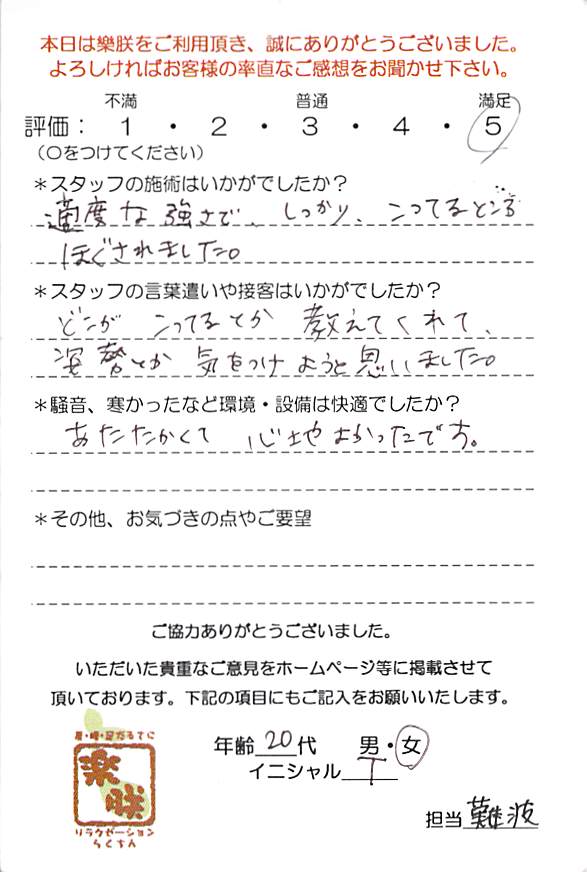 本日は樂朕をご利用頂き、誠にありがとうございました。
よろしければお客様の率直なご感想をお聞かせ下さい。
不満 普通 満足
評価： 1 ・ 2 ・ 3 ・ 4 ・ 5
（〇をつけてください）
＊スタッフの施術はいかがでしたか？
適度な強さで、しっかり、こってるところ
ほぐされました。
＊スタッフの言葉遣いや接客はいかがでしたか？
どこが こってるとか 教えてくれて、
姿勢とか 気をつけようと思いました。
＊騒音、寒かったなど環境・設備は快適でしたか？
あたたかくて 心地よかったです。
＊その他、お気づきの点やご要望
ご協力ありがとうございました。
いただいた貴重なご意見をホームページ等に掲載させて
頂いております。下記の項目にもご記入をお願いいたします。
年齢 20代 男・女
イニシャル T
担当 難波
楽朕
リラクゼーション
らくちん